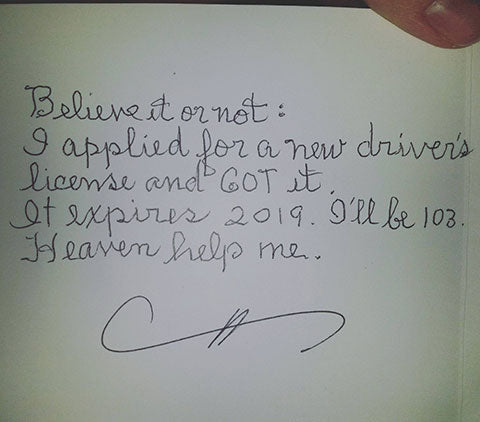 Believe it or not:
I applied for a new driver's
license and GOT it.
It expires 2019. I'll be 103.
Heaven help me.